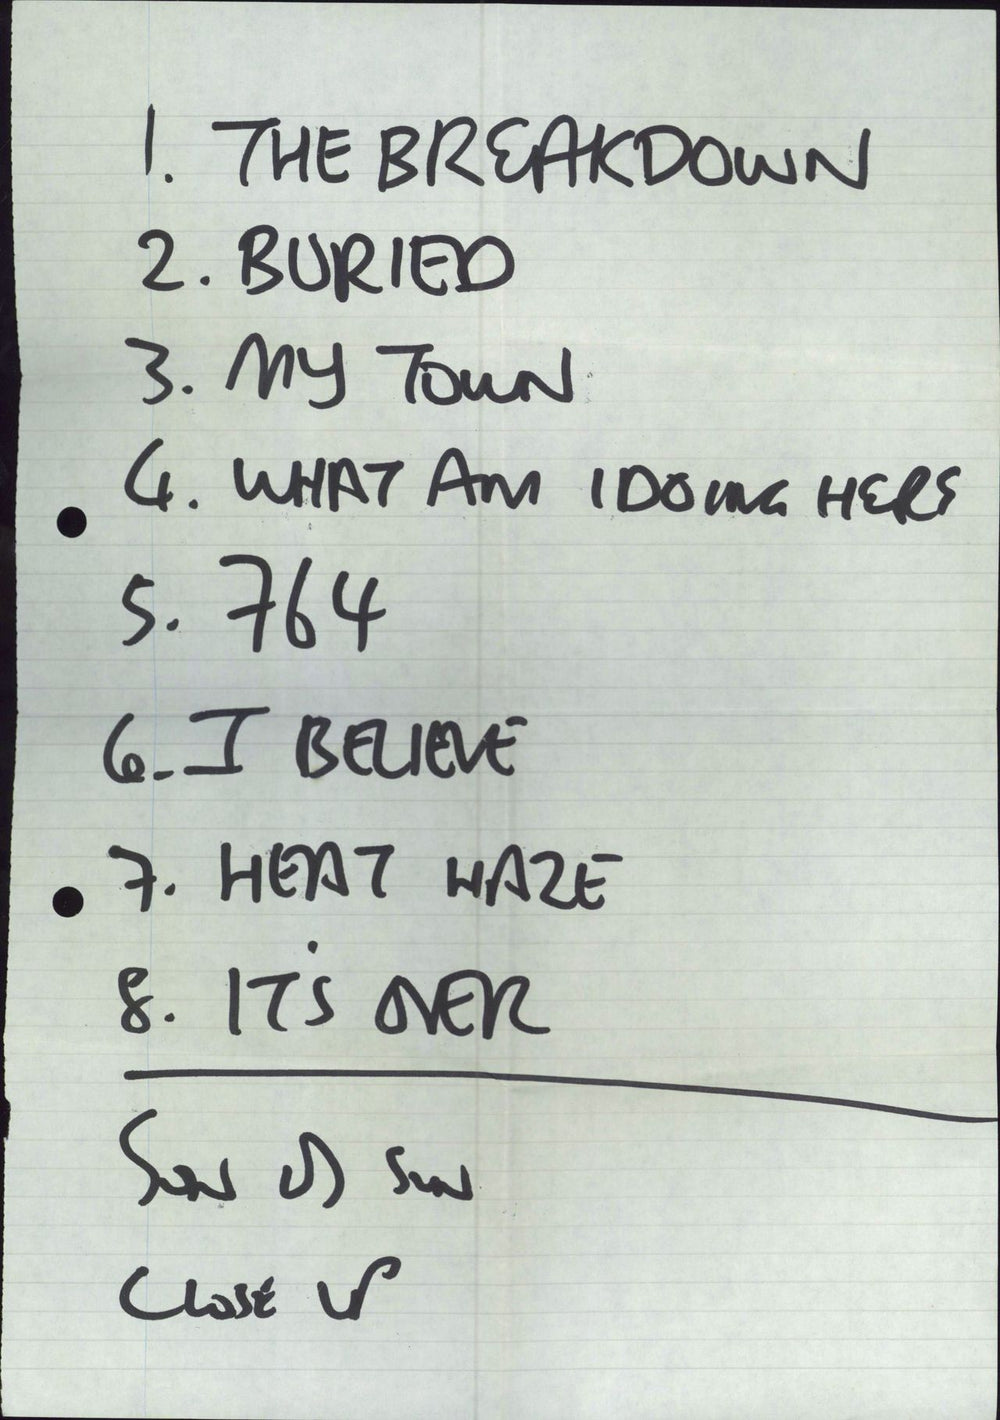 1. THE BREAKDOWN
2. BURIED
3. MY TOWN
4. WHAT AM I DOING HERE
5. 764
6. I BELIEVE
7. HEAT HAZE
8. IT'S OVER
SUN UP SUN
CLOSE UP